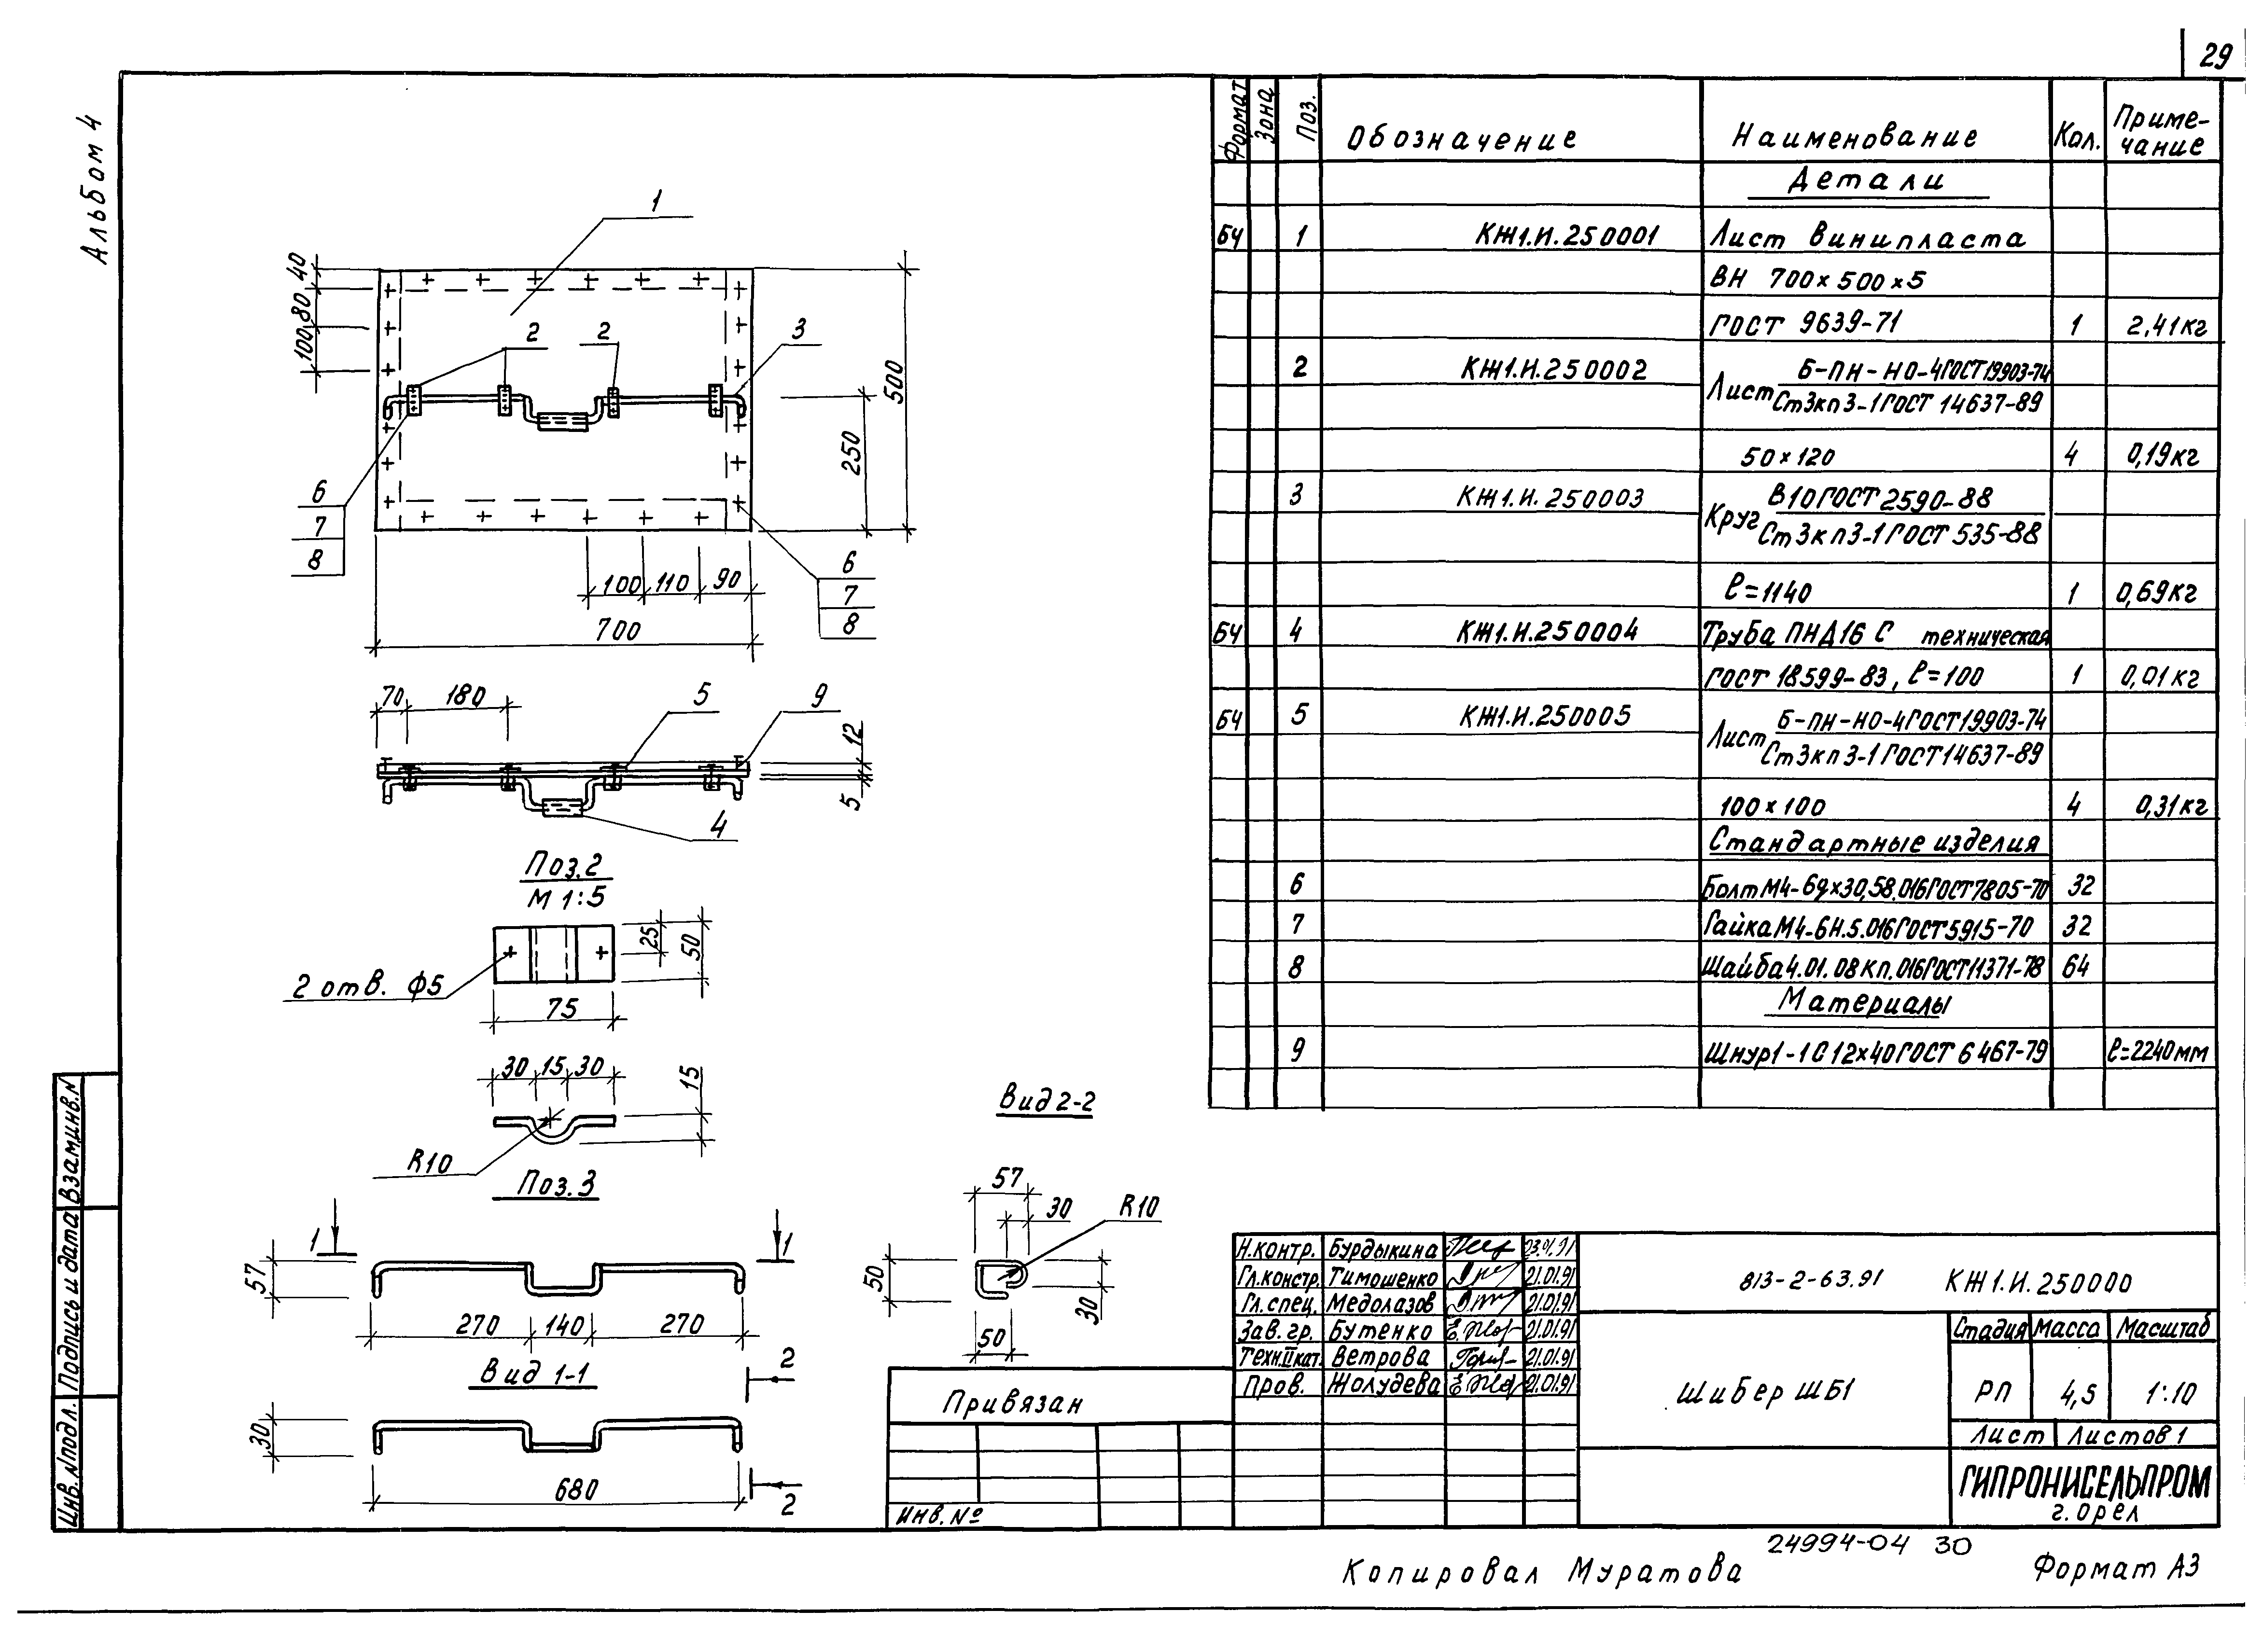 29
Альбом 4
Формат Зона Поз. Обозначение Наименование Кол. Приме-
чание
Детали
БЧ 1 КЖ1.И.250001 Лист винипласта
ВН 700×500×5
ГОСТ 9639-71 1 2,41кг
2 КЖ1.И.250002 Лист Б-ПН-НО-4ГОСТ19903-74
Ст3кп3-1ГОСТ 14637-89
50×120 4 0,19кг
3 КЖ1.И.250003 Круг В10ГОСТ2590-88
Ст3кп3-1ГОСТ 535-88
ℓ=1140 1 0,69кг
БЧ 4 КЖ1.И.250004 Труба ПНД16 С техническая
ГОСТ 18599-83, ℓ=100 1 0,01кг
БЧ 5 КЖ1.И.250005 Лист Б-ПН-НО-4ГОСТ19903-74
Ст3кп3-1ГОСТ14637-89
100×100 4 0,31кг
Стандартные изделия
6 БолтМ4-6g×30,58.016ГОСТ7805-70 32
7 ГайкаМ4-6Н.5.016ГОСТ5915-70 32
8 Шайба4.01.08кп.016ГОСТ11371-78 64
Материалы
9 Шнур1-1С12×40ГОСТ6467-79 ℓ=2240мм
1
40
80
100
2 2 3
500
250
6
7
8
6
7
8
100 110 90
700
70 180 5 9
12
5
4
Поз.2
М 1:5
25
50
2 отв. ф5
75
30 15 30
15
R10
Поз.3
1 1
57
270 140 270
Вид 1-1
2
30
680
2
Вид 2-2
57
30 R10
50
30
50
Привязан
Инв.№
Н.контр. Бурдыкина
Гл.констр. Тимошенко 21.01.91
Гл.спец. Медолазов 21.01.91
Зав.гр. Бутенко 21.01.91
Техн.IIкат. Ветрова 21.01.91
Пров. Жолудева 21.01.91
813-2-63.91 КЖ1.И.250000
Шибер ШБ1
Стадия Масса Масштаб
РП 4,5 1:10
Лист Листов 1
ГИПРОНИСЕЛЬПРОМ
г.Орел
Взам.инв.N
Подпись и дата
Инв.Nподл.
24994-04 30
Копировал Муратова Формат А3